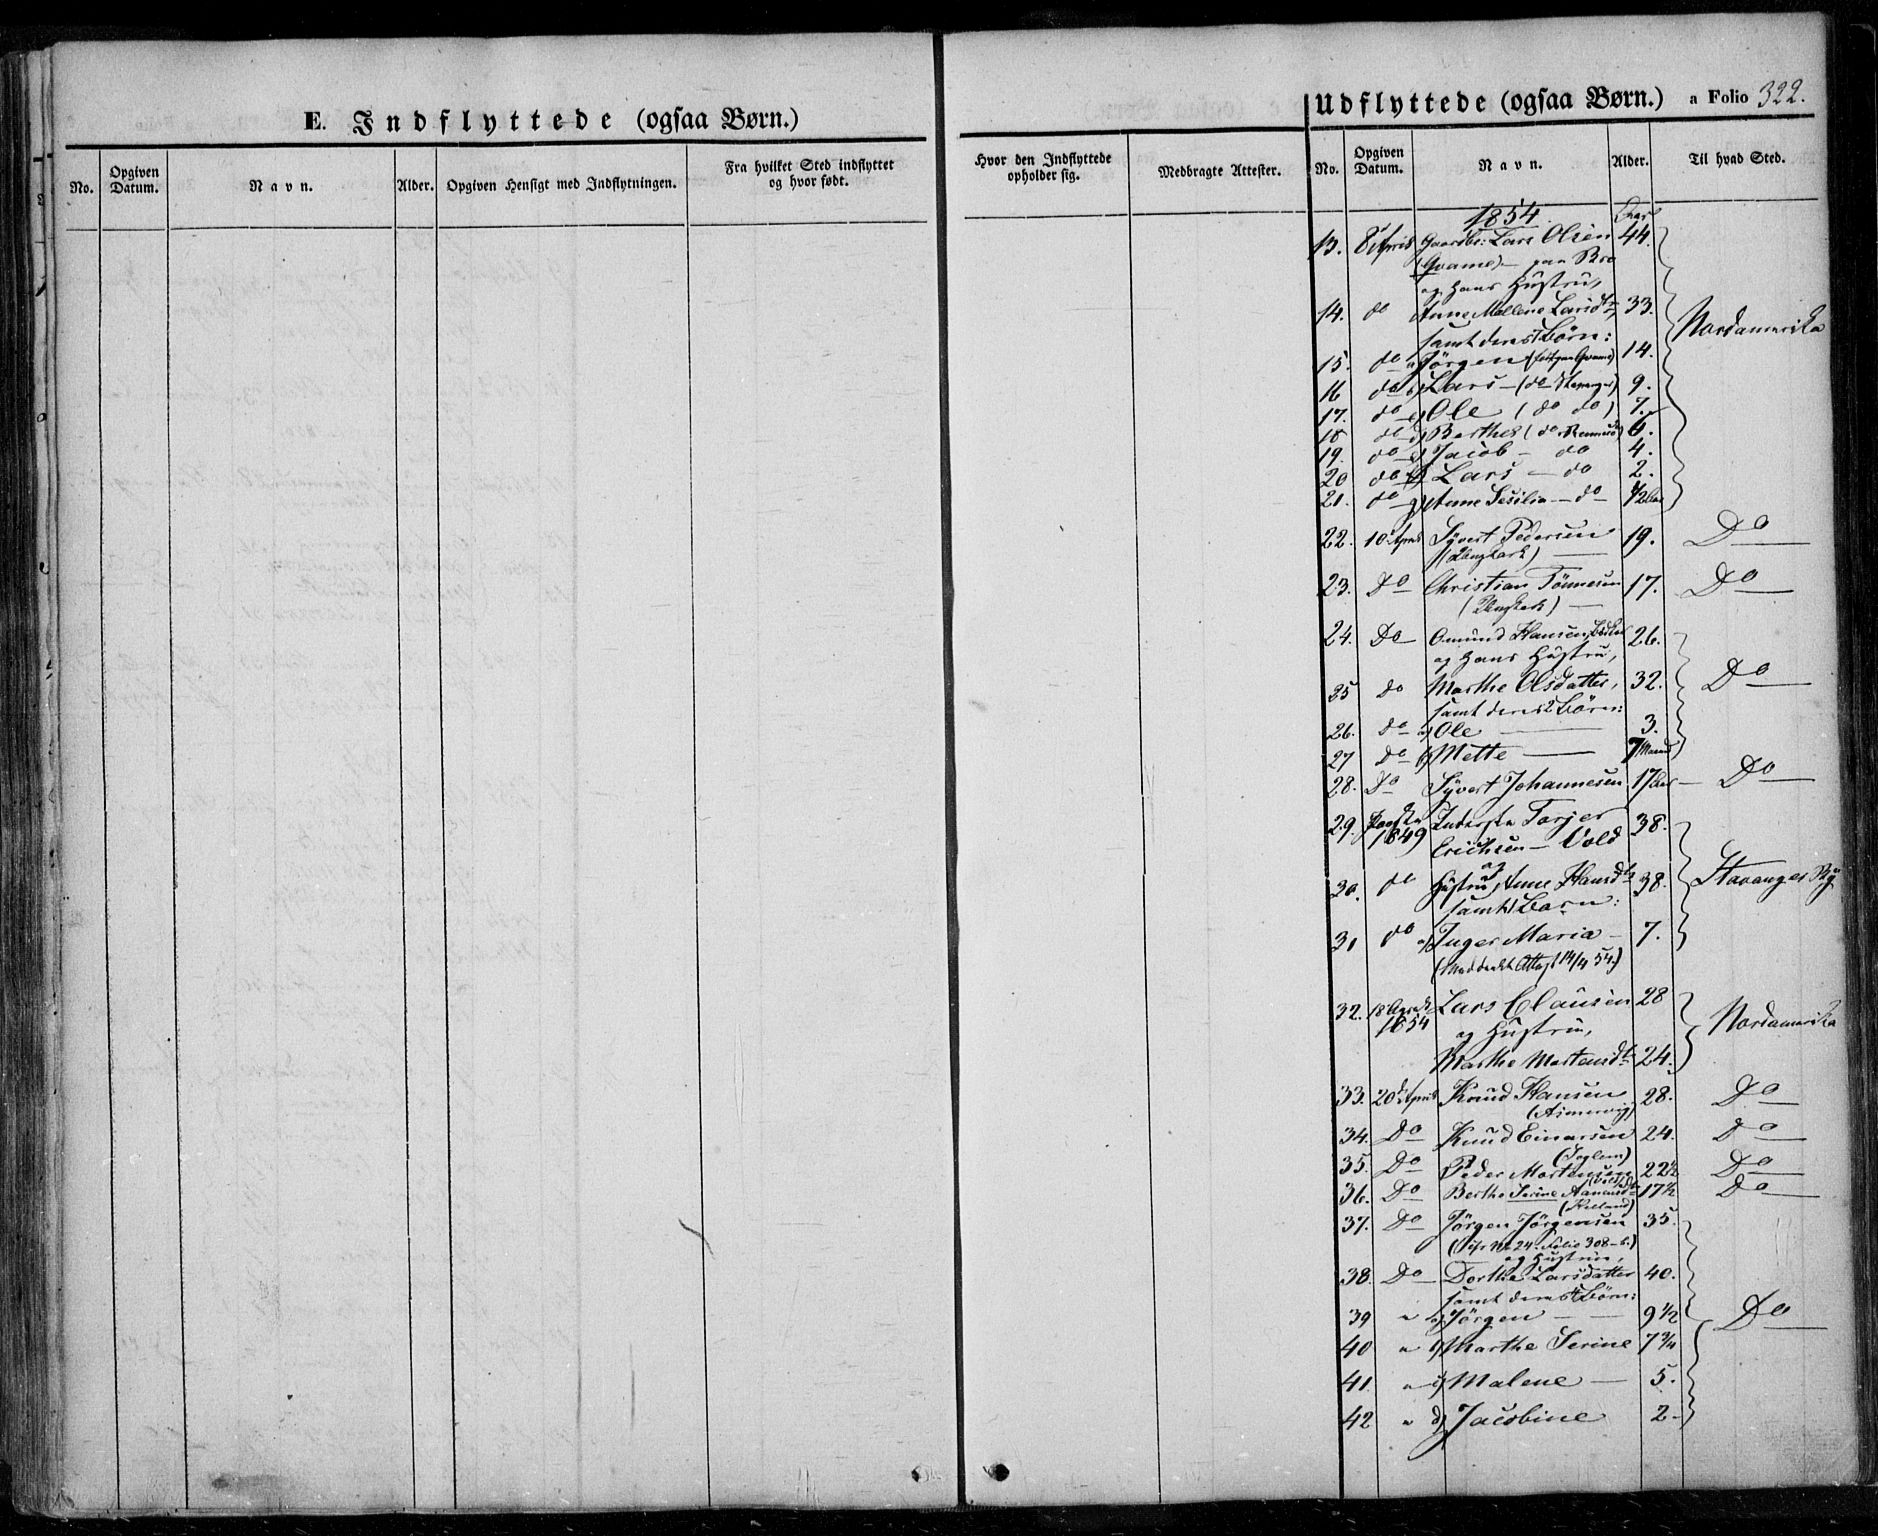 E. Indflyttede (ogsaa Børn.)
Udflyttede (ogsaa Børn.) a Folio 322.
No. Opgiven Datum. Navn. Alder. Opgiven Hensigt med Indflytningen. Fra hvilket Sted indflyttet og hvor født. Hvor den Indflyttede opholder sig. Medbragte Attester. No. Opgiven Datum. Navn. Alder. Til hvad Sted.
1854. Aar
13. 8 April Gaardbr: Lars Olsen 44.
(Qvame) — paa Bro
og Hans Hustru,
14. do Anne Mallene Larsdtr 33. Nordamerika
samt deres 7 Børn:
15. do a) Jörgen (født paa Qvame) 14.
16 do b) Lars — (do Stavanger) 9.
17. do c) Ole (do do) 7.
18 do d) Berthe (do Rennesö) 6.
19. do e) Jacob — do 4.
20 do f) Lars — do 2.
21. do g) Anne Sesilia — do — 1/2 Aar
22. 10 April Syvert Pedersen 19. Do
23. Do Christian Tönnesen 17. Do
24. Do Omund Hansen 26.
og Hans Hustru,
25 do Marthe Olsdatter, 32. Do
samt deres 2 Börn:
26. do a) Ole 3.
27 Do b) Mette 7 Maaned
28. Do Syvert Johannesen 17 Aar — Do
29. Paaske 1849 Inderste Torjer 38.
Erichsen — Vold
og
30. do Hustru Anne Hansdtr 38. Stavanger By
samt 1 Barn:
31 do a) Inger Maria — 7.
(Meddeelt Attest 14/4 54.)
32. 18 April 1854 Lars Clausen 28 Nordamerika
og Hustru,
Marthe Mortensdtr 24.
33. 20 April Knud Hansen 28. Do
(Asmervig)
34. Do Knud Einarsen 24. Do
35. Do Peder Mortensen 22 1/2 Do
36. Do Berthe Serine 17 1/2 Do
37. Do Jörgen Jörgensen 35.
No 24 Folio 308-b.)
og Hustru,
38. Do Dorthe Larsdatter 40.
samt deres 4 Börn:
39 " a) Jörgen 9 1/2 Do
40 " b) Marthe Serine 7 3/4
41 " c) Malene — 5.
42 " d) Jacobine 2